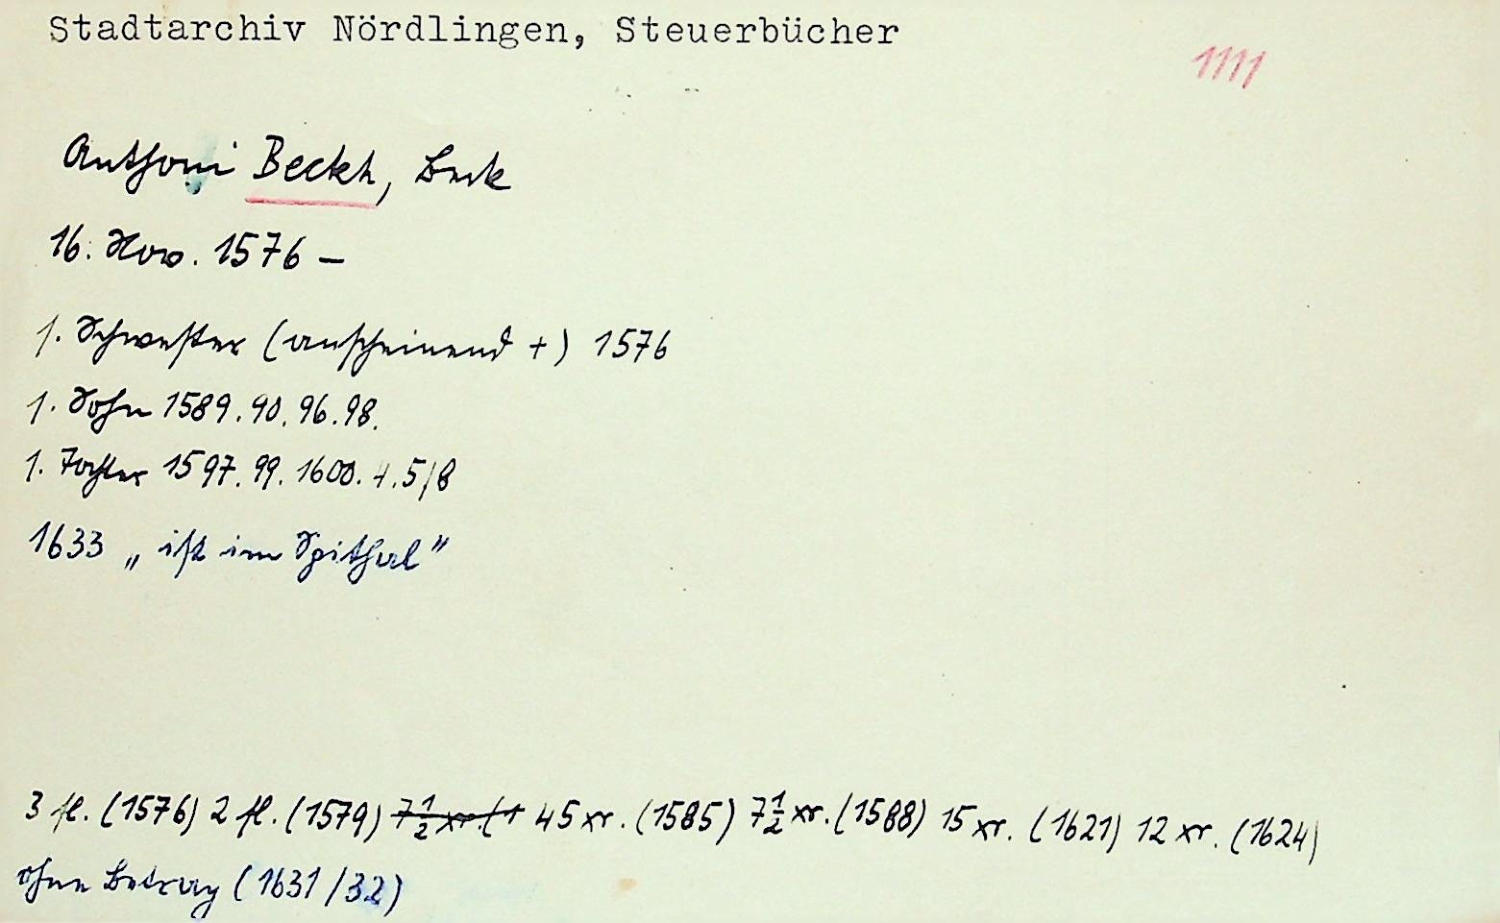 Stadtarchiv Nördlingen, Steuerbücher
1111
Anthoni Beckh, Beck
16. Nov. 1576 –
1. Schwester (anscheinend +) 1576
1. Sohn 1589. 90. 96. 98.
1. Tochter 1597. 99. 1600. 4. 5/8
1633 „ist im Spithal"
3 fl. (1576) 2 fl. (1579) 7½ xr. (1 45 xr. (1585) 7½ xr. (1588) 15 xr. (1621) 12 xr. (1624)
ohne Betrag (1631/32)